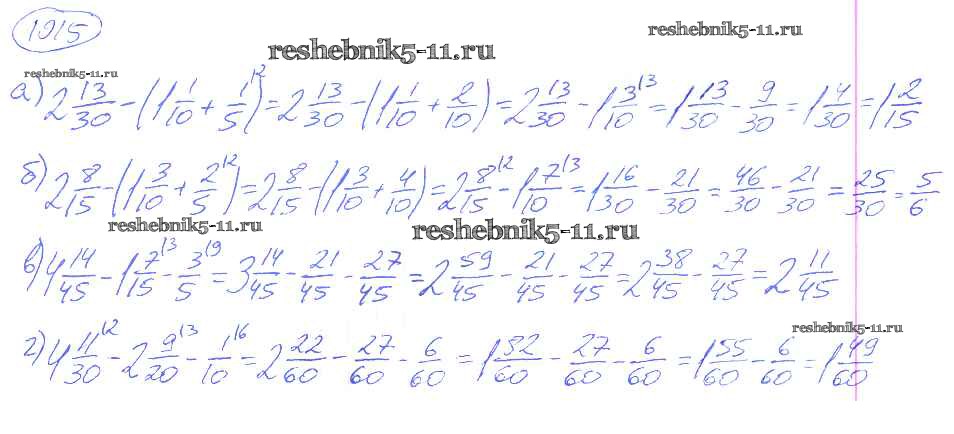 1015
reshebnik5-11.ru
reshebnik5-11.ru
reshebnik5-11.ru
а) 2 13/30 - (1 1/10 + 1/5 |2) = 2 13/30 - (1 1/10 + 2/10) = 2 13/30 - 1 3/10 |3 = 1 13/30 - 9/30 = 1 4/30 = 1 2/15
б) 2 8/15 - (1 3/10 + 2/5 |2) = 2 8/15 - (1 3/10 + 4/10) = 2 8/15 |2 - 1 7/10 |3 = 1 16/30 - 21/30 = 46/30 - 21/30 = 25/30 = 5/6
reshebnik5-11.ru
reshebnik5-11.ru
в) 4 14/45 - 1 7/15 |3 - 3/5 |9 = 3 14/45 - 21/45 - 27/45 = 2 59/45 - 21/45 - 27/45 = 2 38/45 - 27/45 = 2 11/45
reshebnik5-11.ru
г) 4 11/30 |2 - 2 9/20 |3 - 1/10 |6 = 2 22/60 - 27/60 - 6/60 = 1 82/60 - 27/60 - 6/60 = 1 55/60 - 6/60 = 1 49/60